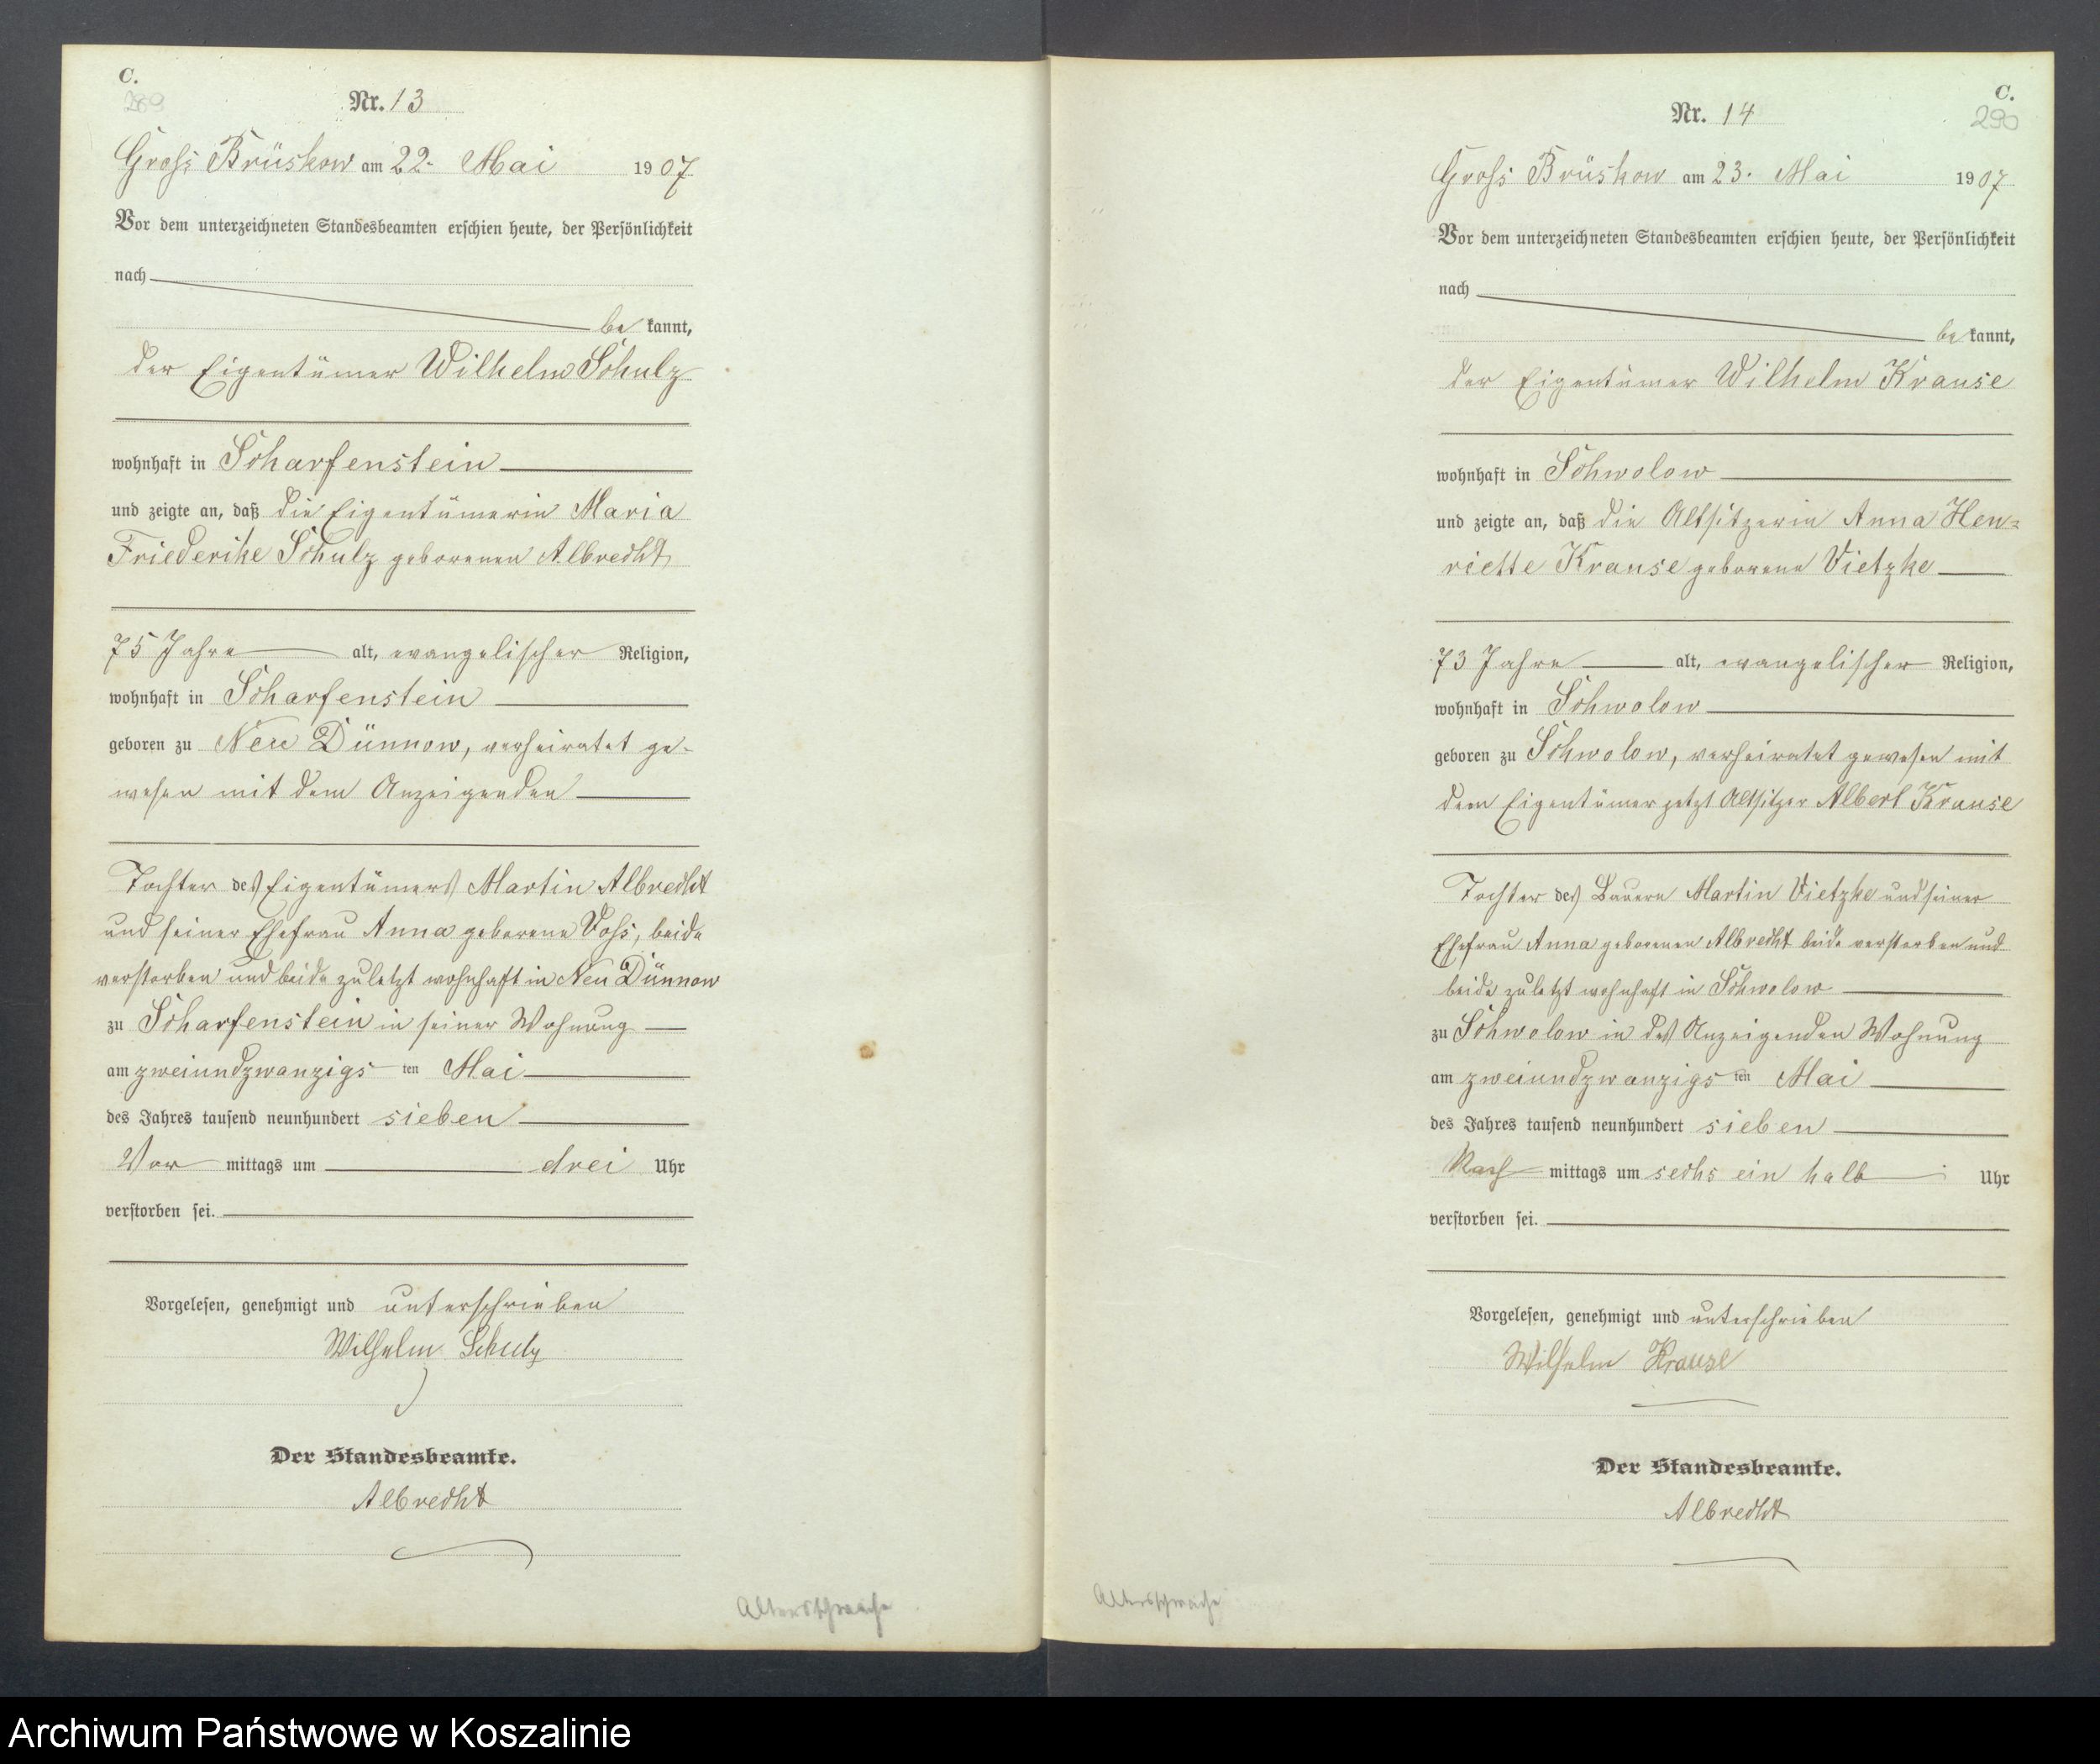 C.
289
Nr. 13
Gross Brüskow am 22. Mai 1907
Vor dem unterzeichneten Standesbeamten erschien heute, der Persönlichkeit
nach
be kannt,
der Eigentümer Wilhelm Schulz
wohnhaft in Scharfenstein
und zeigte an, daß die Eigentümerin Maria
Friederike Schulz geborenen Albrecht
75 Jahre alt, evangelischer Religion,
wohnhaft in Scharfenstein
geboren zu Neu Dünnow, verheiratet ge-
wesen mit dem Anzeigenden
Tochter des Eigentümers Martin Albrecht
und seiner Ehefrau Anna geborene Voss, beide
verstorben und beide zuletzt wohnhaft in Neu Dünnow
zu Scharfenstein in seiner Wohnung
am zweiundzwanzigs ten Mai
des Jahres tausend neunhundert sieben
Vor mittags um drei Uhr
verstorben sei.
Vorgelesen, genehmigt und unterschrieben
Wilhelm Schulz
Der Standesbeamte.
Albrecht
Altersschwäche
C.
290
Nr. 14
Gross Brüskow am 23. Mai 1907
Vor dem unterzeichneten Standesbeamten erschien heute, der Persönlichkeit
nach
be kannt,
der Eigentümer Wilhelm Krause
wohnhaft in Schwolow
und zeigte an, daß die Altsitzerin Anna Hen=
riette Krause geborene Vietzke
73 Jahre alt, evangelischer Religion,
wohnhaft in Schwolow
geboren zu Schwolow, verheiratet gewesen mit
dem Eigentümer jetzt Altsitzer Albert Krause
Tochter des Bauern Martin Vietzke und seiner
Ehefrau Anna geborenen Albrecht beide verstorben und
beide zuletzt wohnhaft in Schwolow
zu Schwolow in des Anzeigenden Wohnung
am zweiundzwanzigs ten Mai
des Jahres tausend neunhundert sieben
Nach mittags um sechs ein halb Uhr
verstorben sei.
Vorgelesen, genehmigt und unterschrieben
Wilhelm Krause
Der Standesbeamte.
Albrecht
Altersschwäche
Archiwum Państwowe w Koszalinie